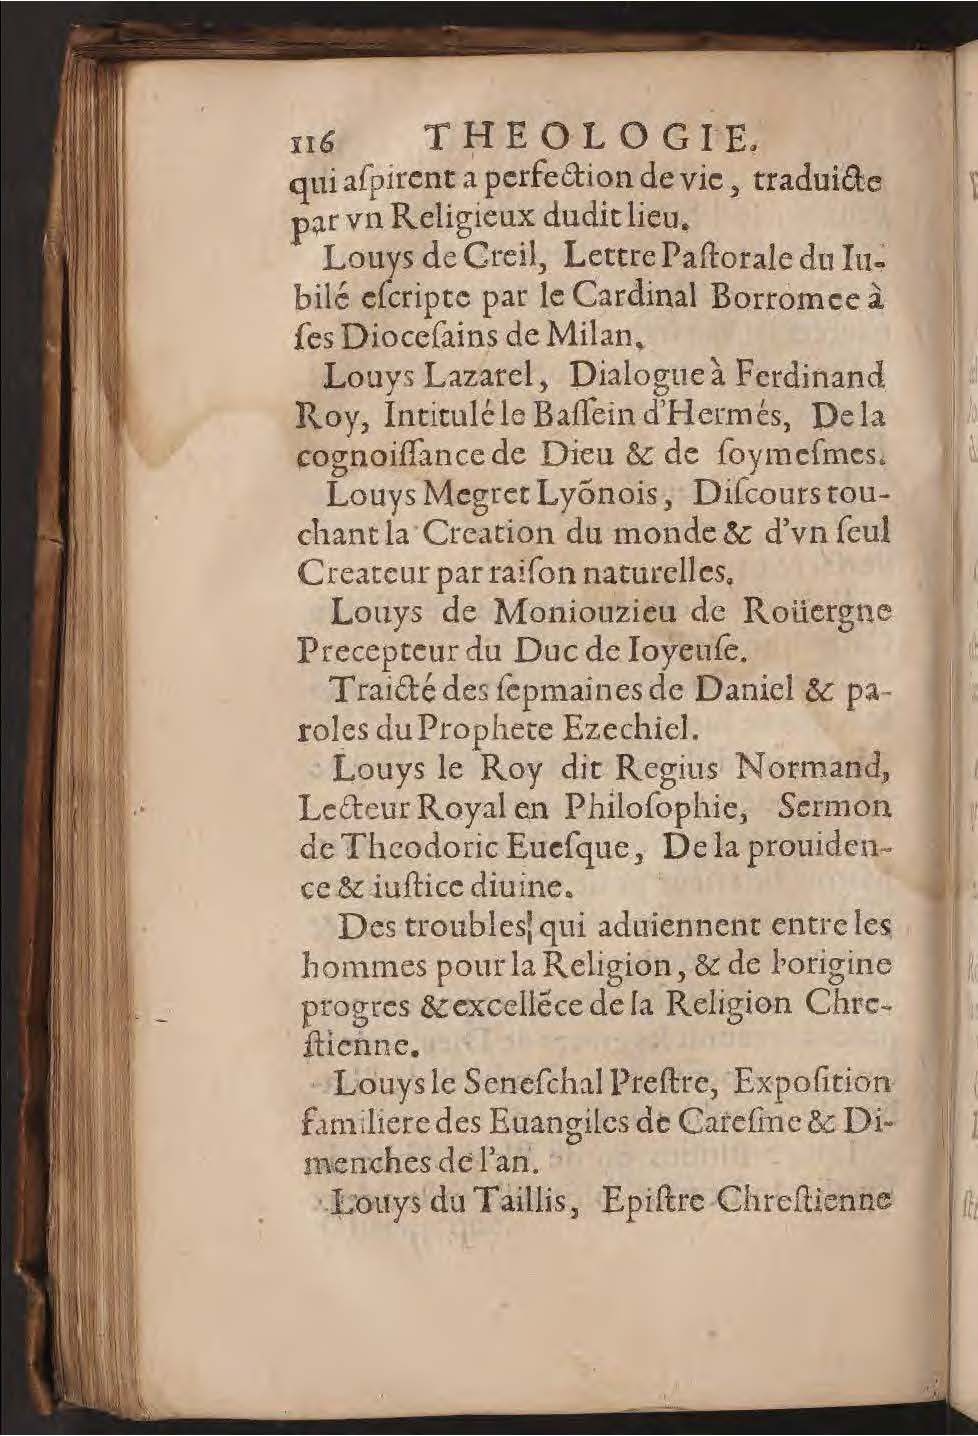 116 THEOLOGIE.
qui aſpirent a perfection de vie, traduicte
par vn Religieux dudit lieu.
Louys de Creil, Lettre Paſtorale du Iu-
bilé eſcripte par le Cardinal Borromee à
ſes Dioceſains de Milan.
Louys Lazarel, Dialogue à Ferdinand
Roy, Intitulé le Baſſein d'Hermés, De la
cognoiſſance de Dieu & de ſoymeſmes.
Louys Megret Lyõnois, Diſcours tou-
chant la Creation du monde & d'vn ſeul
Createur par raiſon naturelles.
Louys de Moniouzieu de Roüergne
Precepteur du Duc de Ioyeuſe.
Traicté des ſepmaines de Daniel & pa-
roles du Prophete Ezechiel.
Louys le Roy dit Regius Normand,
Lecteur Royal en Philoſophie, Sermon
de Theodoric Eueſque, De la prouiden-
ce & iuſtice diuine.
Des troubles qui aduiennent entre les
hommes pour la Religion, & de l'origine
progres & excellẽce de la Religion Chre-
ſtienne.
Louys le Seneſchal Preſtre, Expoſition
familiere des Euangiles de Careſme & Di-
menches de l'an.
Louys du Taillis, Epiſtre Chreſtienne